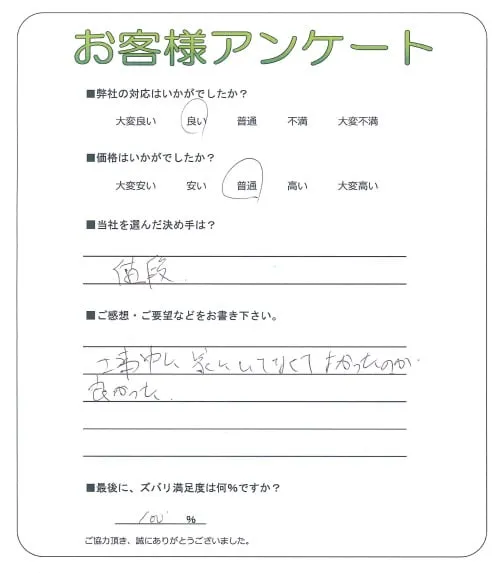 お客様アンケート
■弊社の対応はいかがでしたか？
大変良い 良い 普通 不満 大変不満
■価格はいかがでしたか？
大変安い 安い 普通 高い 大変高い
■当社を選んだ決め手は？
値段.
■ご感想・ご要望などをお書き下さい。
工事中に家にいてなくてよかったのが.
良かった.
■最後に、ズバリ満足度は何％ですか？
100 ％
ご協力頂き、誠にありがとうございました。